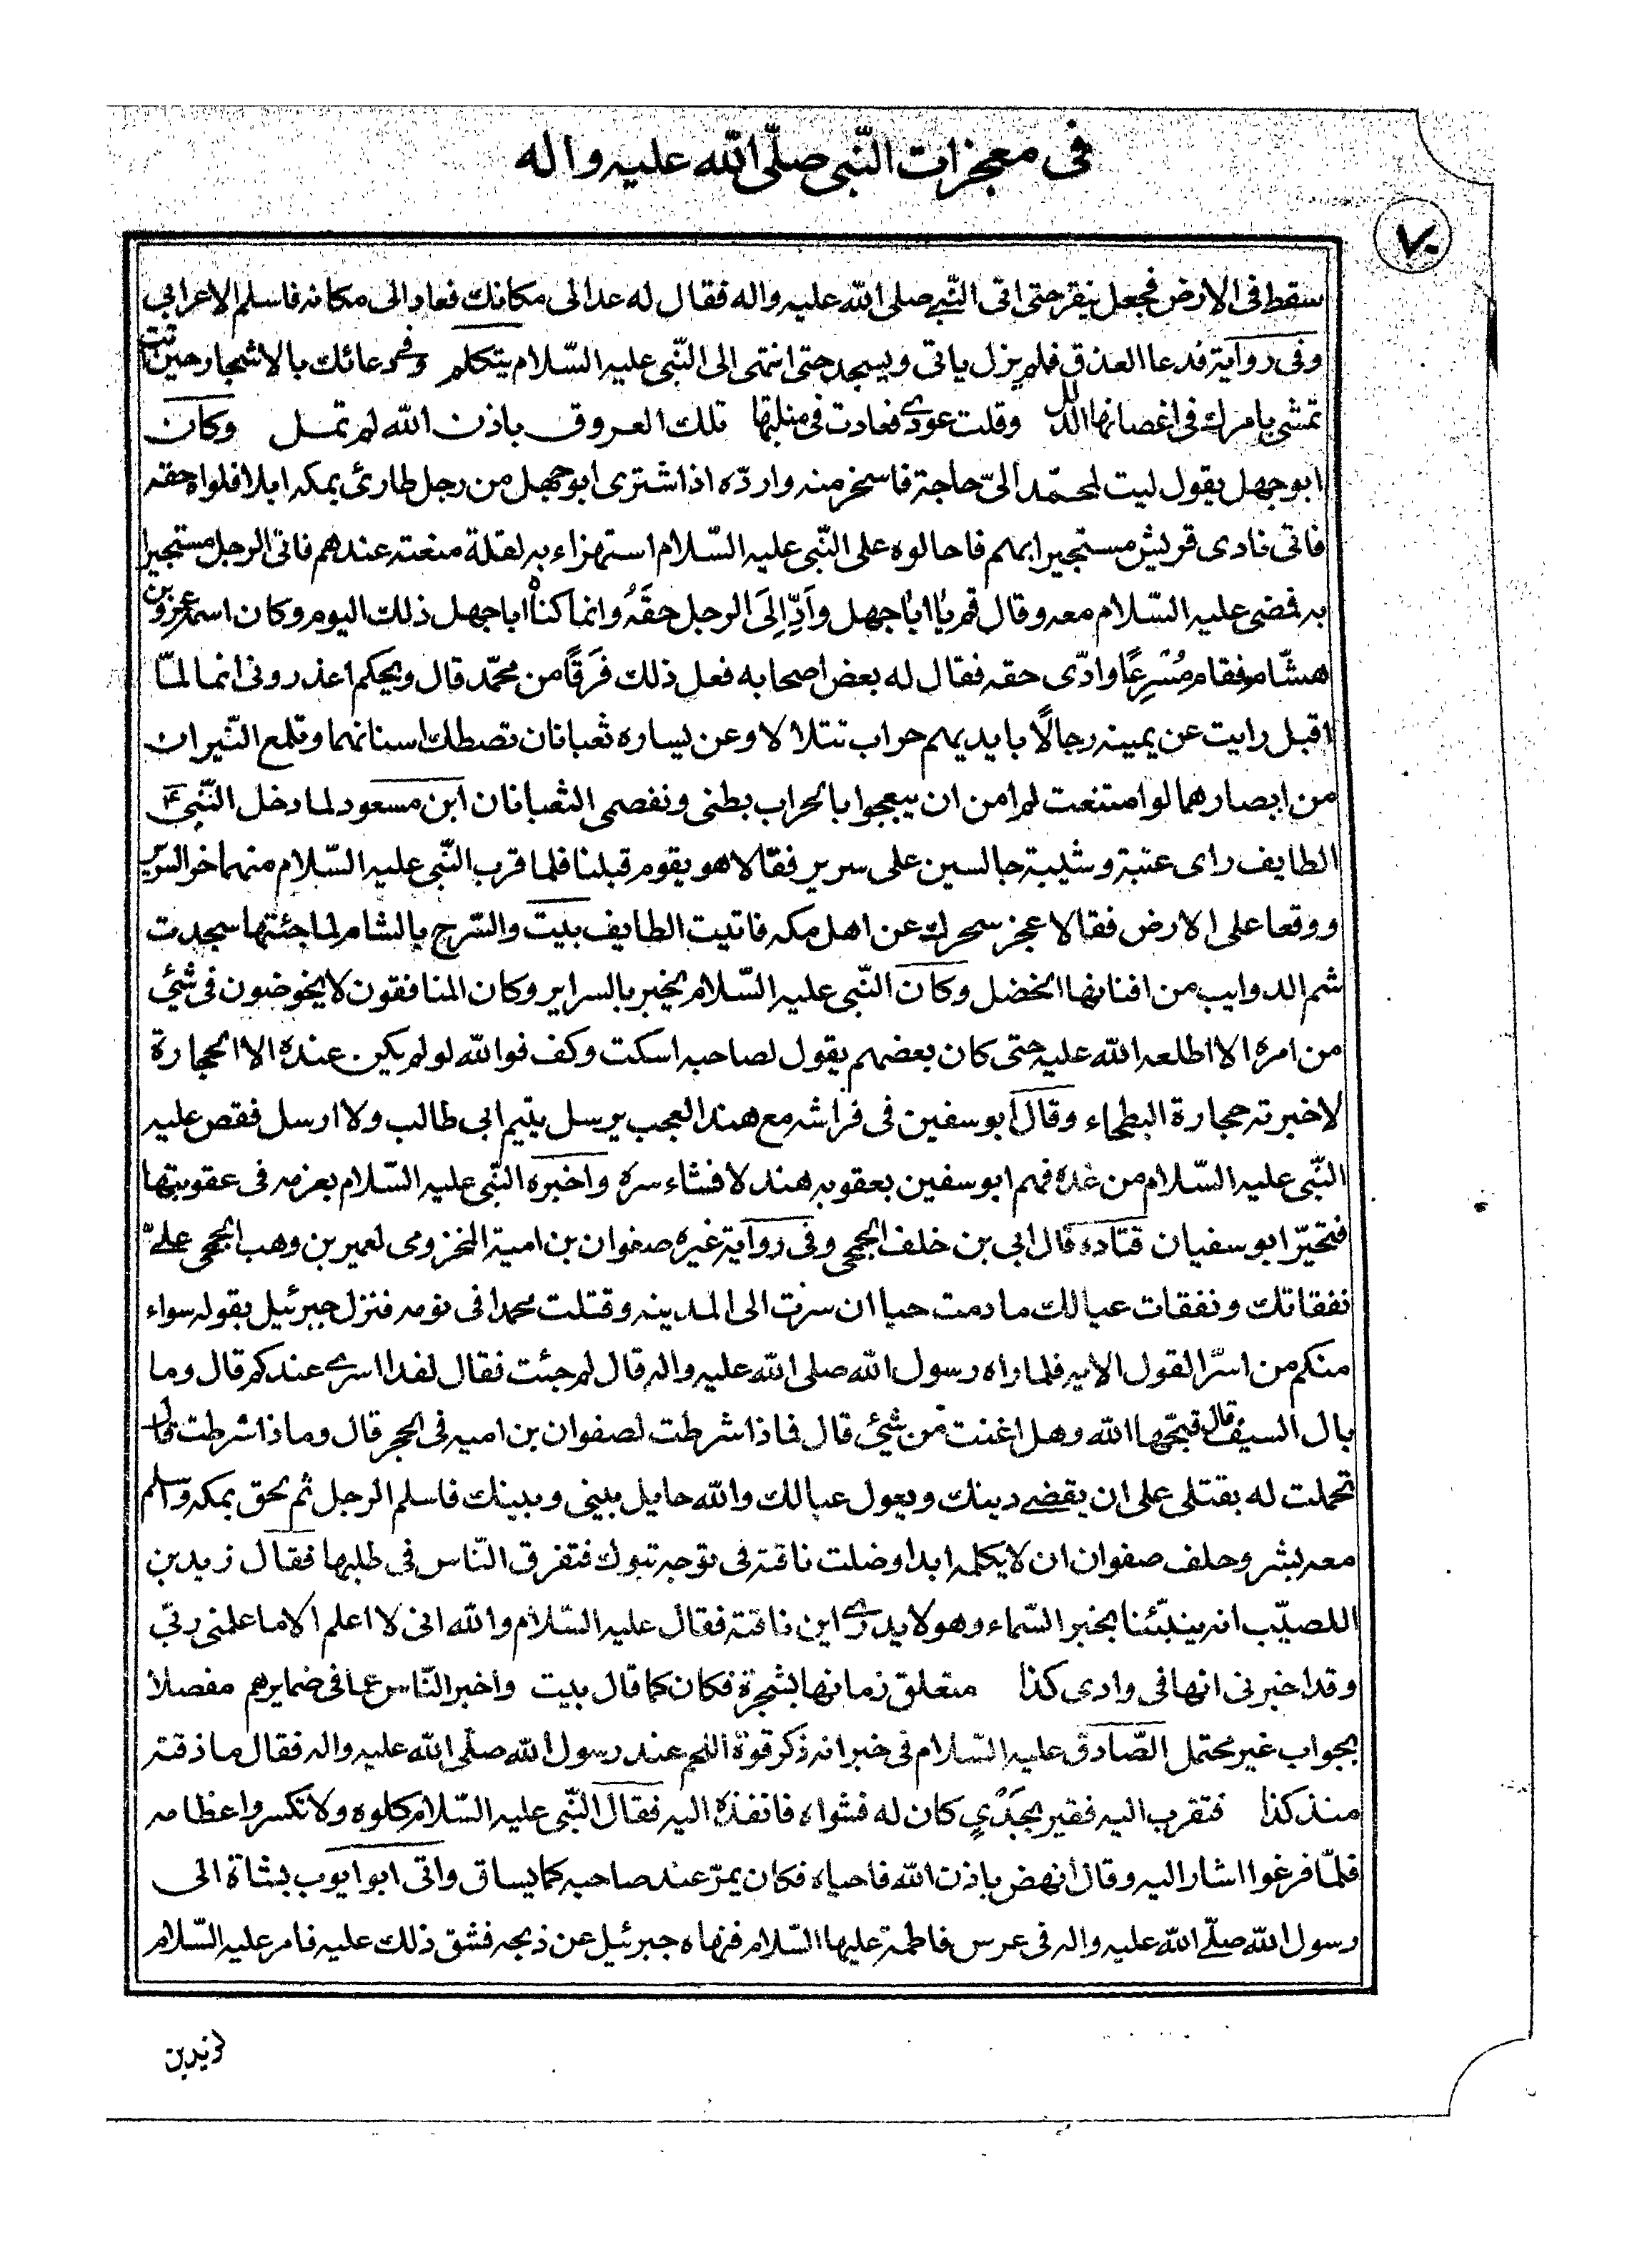 فى معجزات النّبى صلّى الله عليه واله
٧٠
سقط فى الارض فجعل ينقر حتى اتى النّبى صلى الله عليه واله فقال له عد الى مكانك فعاد الى مكانه فاسلم الاعرابى
وفى رواية فدعا العذق فلم يزل ياتى ويسجد حتى انتهى الى النّبى عليه السّلام يتكلم وفى دعائك بالاشجار حين اتت
تمشى بامرك فى اغصانها الذلل وقلت عودى فعادت فى منابتها تلك العروق باذن الله لم تمل وكان
ابو جهل يقول ليت لمحمّد الىّ حاجة فاسخر منه وارده اذ اشترى ابو جهل من رجل طارئ بمكه ابلا فلواه حقه
فاتى نادى قريش مستجيرا بهم فاحالوه على النّبى عليه السّلام استهزاء به لقلة منعته عندهم فاتى الرجل مستجيرا
به فمضى عليه السّلام معه وقال قم يا ابا جهل وادّ الى الرجل حقه وانما كنا ابا جهل ذلك اليوم وكان اسمه عمرو بن
هشام فقام مسرعًا وادّى حقه فقال له بعض اصحابه فعل ذلك فرقًا من محمّد قال ويحكم اعذرونى انما لمّا
اقبل رايت عن يمينه رجالًا بايديهم حراب تتلالا وعن يساره ثعبانان تصطك اسنانهما وتلمع النّيران
من ابصارهما لو امتنعت لم امن ان يبعجوا بالحراب بطنى وتقصمى الثعبانان ابن مسعود لما دخل النّبى ع
الطايف راى عتبة وشيبة جالسين على سرير فقالا هو يقوم قبلنا فلما قرب النّبى عليه السّلام منهما خر السرير
ووقعا على الارض فقالا عجز سحرك عن اهل مكه فاتيت الطايف بيت والسّرج بالشام لما جئتها سجدت
شم الدوايب من افنانها الخضل وكان النّبى عليه السّلام يخبر بالسراير وكان المنافقون لا يخوضون فى شئ
من امره الا اطلعه الله عليه حتى كان بعضهم يقول لصاحبه اسكت وكف فوالله لو لم يكن عنده الا الحجارة
لاخبرته حجارة البطحاء وقال ابو سفين فى فراشه مع هند العجب يرسل يتيم ابى طالب ولا ارسل فقص عليه
النّبى عليه السّلام من غده فهم ابو سفين بعقوبه هند لافشاء سره واخبره النّبى عليه السّلام بعزمه فى عقوبتها
فتحيّر ابو سفيان قتاده قال ابى بن خلف الجمحى وفى رواية غيره صفوان بن امية المخزومى لعمير بن وهب الجمحى علىّ
نفقاتك ونفقات عيالك ما دمت حيا ان سرت الى المدينه وقتلت محمدا فى نومه فنزل جبرئيل بقوله سواء
منكم من اسرّ القول الايه فلما راه رسول الله صلى الله عليه واله قال لم جئت فقال لفدا اسرى عندكم قال وما
بال السيف قال قبّحها الله وهل اغنت من شئ قال فماذا شرطت لصفوان بن اميه فى الحجر قال وماذا شرطت قال
تحملت له بقتلى على ان يقضى دينك ويعول عيالك والله حايل بينى وبينك فاسلم الرجل ثم لحق بمكه واسلم
معه بشر وحلف صفوان ان لا يكلمه ابدا وضلت ناقته فى توجه تبوك فتفرق النّاس فى طلبها فقال زيد بن
اللصيّب انه ينبّئنا بخبر السّماء وهو لا يدرى اين ناقته فقال عليه السّلام والله انى لا اعلم الا ما علمنى ربّى
وقد اخبرنى انها فى وادى كذا متعلق زمانها بشجرة فكان كما قال بيت واخبر النّاس عما فى ضمايرهم مفصلا
بجواب غير محتمل الصّادق عليه السّلام فى خبر انه ذكر قوة اللحم عند رسول الله صلّى الله عليه واله فقال ما ذقته
منذ كذا فتقرب اليه فقير بجدْي كان له فشواه فانفذه اليه فقال النّبى عليه السّلام كلوه ولا تكسروا عظامه
فلمّا فرغوا اشار اليه وقال انهض باذن الله فاحياه فكان يمرّ عند صاحبه كما يساق واتى ابو ايوب بشاة الى
رسول الله صلّى الله عليه واله فى عرس فاطمة عليها السّلام فنهاه جبرئيل عن ذبحه فشق ذلك عليه فامر عليه السّلام